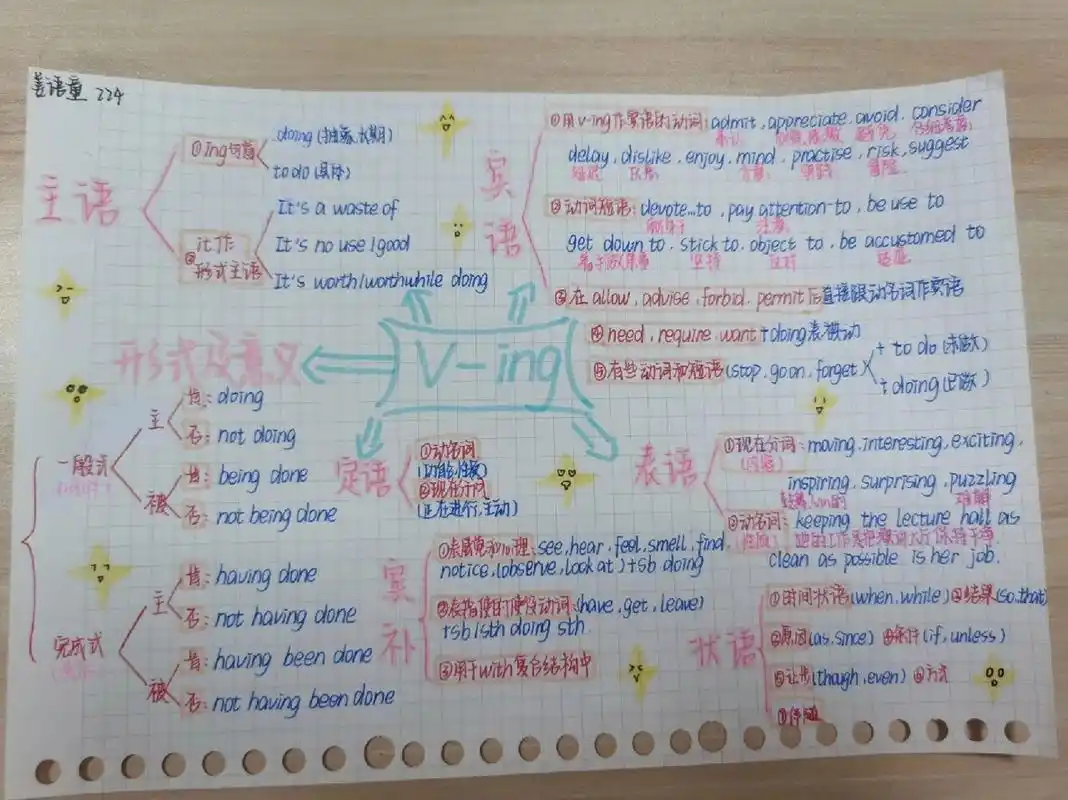 姜语童 224
主语
①ing句首
doing(抽象,长期)
to do(具体)
②it作
形式主语
It's a waste of
It's no use/good
It's worth/worthwhile doing
宾语
①用v-ing作宾语的动词: admit, appreciate, avoid, consider
承认 避免
delay, dislike, enjoy, mind, practise, risk, suggest
延迟 介意 冒险
②动词短语: devote...to, pay attention to, be use to
注意
get down to, stick to, object to, be accustomed to
坚持 反对 适应
③在allow, advise, forbid, permit后直接跟动名词作宾语
④need, require, want+doing表被动
⑤有些动词和短语(stop, go on, forget)
+ to do(未做)
+ doing(已做)
V-ing
形式及意义
一般式
主
肯: doing
否: not doing
被
肯: being done
否: not being done
完成式
主
肯: having done
否: not having done
被
肯: having been done
否: not having been done
定语
①动名词
(功能,性质)
②现在分词
(正在进行,主动)
表语
①现在分词: moving, interesting, exciting,
inspiring, surprising, puzzling
②动名词: keeping the lecture hall as
clean as possible is her job.
宾补
①表感觉和心理: see, hear, feel, smell, find,
notice, (observe, look at)+sb doing
②表指使的使役动词: (have, get, leave)
+sb/sth doing sth
③用于with复合结构中
状语
①时间状语(when, while) ②结果(so, that)
③原因(as, since) ④条件(if, unless)
⑤让步(though, even) ⑥方式
⑦伴随